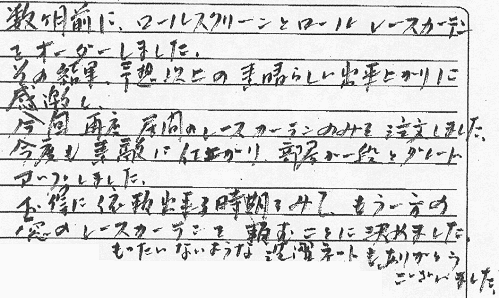 数ヶ月前に、ロールスクリーンとロールレースカーテン
をオーダーしました。
その結果、予想以上の素晴らしい出来上がりに
感激し、
今回 再度 居間のレースカーテンのみを注文しました。
今度も素敵に仕上がり 部屋が一段とグレード
アップしました。
お得に依頼出来る時期をみて、もう一方の
窓のレースカーテンを頼むことに決めました。
もったいないような洗濯ネットもありがとう
ございました。